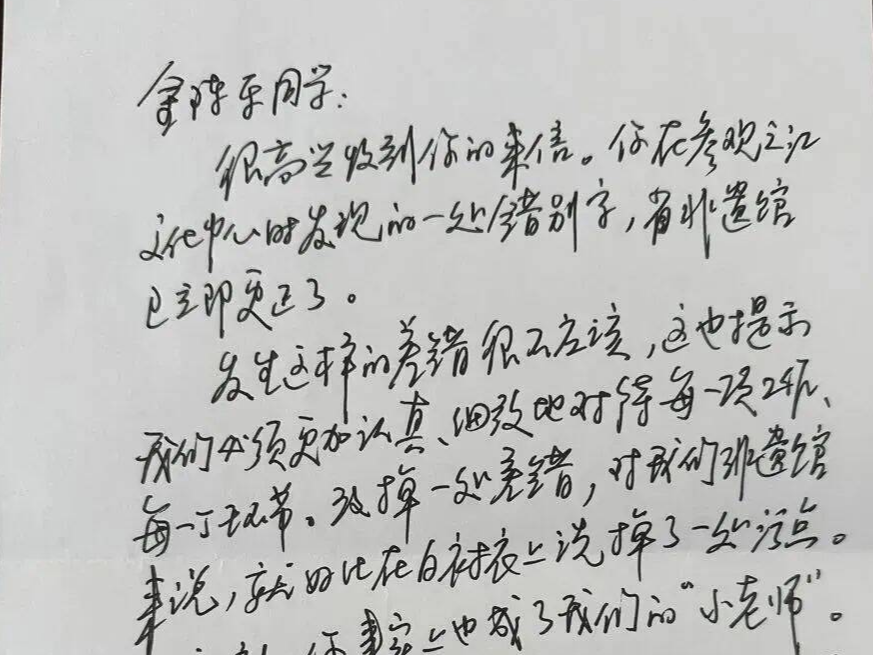 金陈乐同学：
很高兴收到你的来信。你在参观之江
文化中心时发现的一处错别字，省非遗馆
已立即更正了。
发生这样的差错很不应该，这也提示
我们必须更加认真、细致地对待每一项工作、
每一个环节。改掉一处差错，对我们非遗馆
来说，就好比在白衬衣上洗掉了一处污点。
你事实上也成了我们的“小老师”。